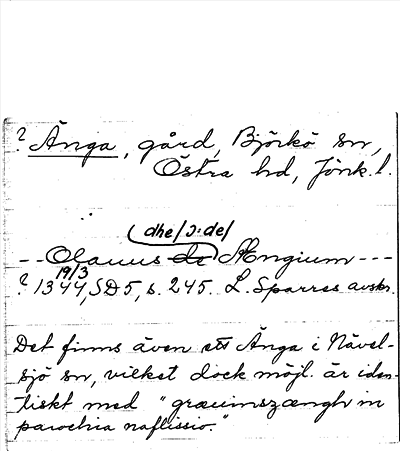 ? Änga, gård, Björkö sn,
Östra hd, Jönk. l.
dhe/ɔ: de/
-- Olauus de Ængium ---
19/3
? 1344, SD5, s. 245. L. Sparres avskr.
Det finns även ett Änga i Nävel-
sjö sn, vilket dock möjl. är iden-
tiskt med "græuimszængh in
parochia naflissio."